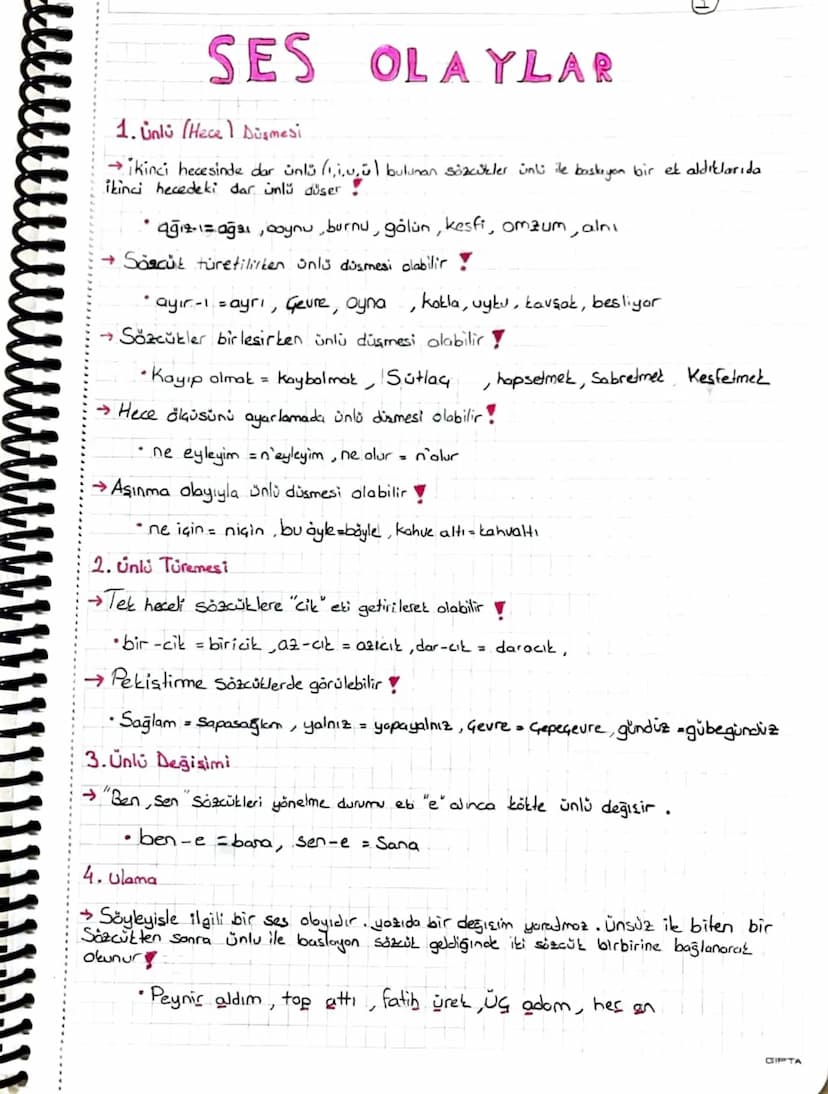 1
SES OLAYLAR
1. Ünlü (Hece) Düşmesi
→ İkinci hecesinde dar ünlü (ı,i,u,ü) bulunan sözcükler ünlü ile başlayan bir ek aldıklarıda
ikinci hecedeki dar ünlü düşer !
• ağız-ı=ağzı, boynu, burnu, gölün, keşfi, omzum, alnı
→ Sözcük türetilirken ünlü düşmesi olabilir !
• ayır-ı =ayrı, Çevre, oyna , kokla, uyku, kavşak, besliyor
→ Sözcükler birleşirken ünlü düşmesi olabilir !
• Kayıp olmak = kaybolmak, Sütlaç , hapsetmek, Sabretmek Keşfetmek
→ Hece ölçüsünü ayarlamada ünlü düşmesi olabilir !
• ne eyleyim =n'eyleyim, ne olur = n'olur
→ Aşınma olayıyla ünlü düşmesi olabilir !
• ne için = niçin, bu öyle=böyle, kahve altı = kahvaltı
2. Ünlü Türemesi
→ Tek heceli sözcüklere "cik" eki getirilerek olabilir !
• bir -cik = biricik, az-cık = azıcık, dar-cık = daracık,
→ Pekiştirme sözcüklerde görülebilir !
• Sağlam = sapasağlam, yalnız = yapayalnız, Çevre = Çepeçevre, gündüz =güpegündüz
3. Ünlü Değişimi
→ "Ben, sen" sözcükleri yönelme durumu eki "e" alınca kökte ünlü değişir.
• ben-e = bana, sen-e = Sana
4. Ulama
→ Söyleyişle ilgili bir ses olayıdır. yazıda bir değişim yaratmaz. Ünsüz ile biten bir
Sözcükten sonra ünlü ile başlayan sözcük geldiğinde iki sözcük birbirine bağlanarak
okunur !
• Peynir aldım, top attı, fatih ürek, Üç adam, her an
GIPTA